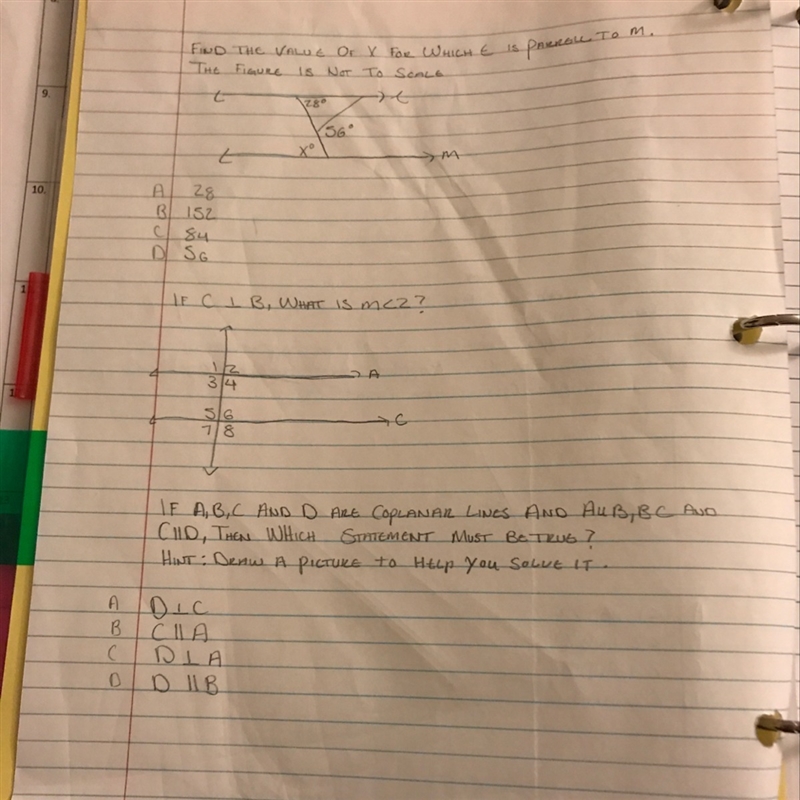 9.
10.
1
1
FIND THE VALUE OF X FOR WHICH ℓ IS PARROLL TO M.
THE FIGURE IS NOT TO SCALE
28° ℓ
56°
X° M
A 28
B 152
C 84
D 56
IF C ⊥ B, WHAT IS M<2?
1 2 A
3 4
5 6 C
7 8
IF A,B,C AND D ARE COPLANAR LINES AND A॥B, BC AND
C||D, THEN WHICH STATEMENT MUST BE TRUE?
HINT: DRAW A PICTURE TO HELP YOU SOLVE IT.
A D⊥C
B C||A
C D⊥A
D D||B